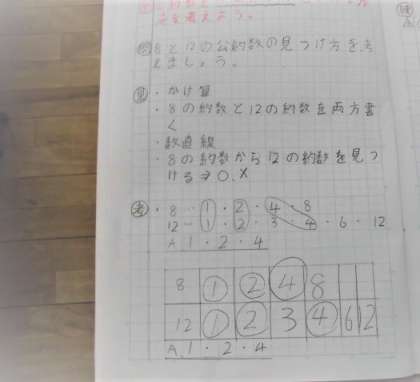 を考えよう。
問 8と12の公約数の見つけ方を考
えましょう。
見 ・かけ算
・8の約数と12の約数を両方書
く
・数直線
・8の約数から12の約数を見つ
ける⇒○.×
考 ・8 ・1・2・4・8
12・1・2・3・4・6・12
A 1・2・4
8 1 2 4 8
12 1 2 3 4 6 12
A 1・2・4